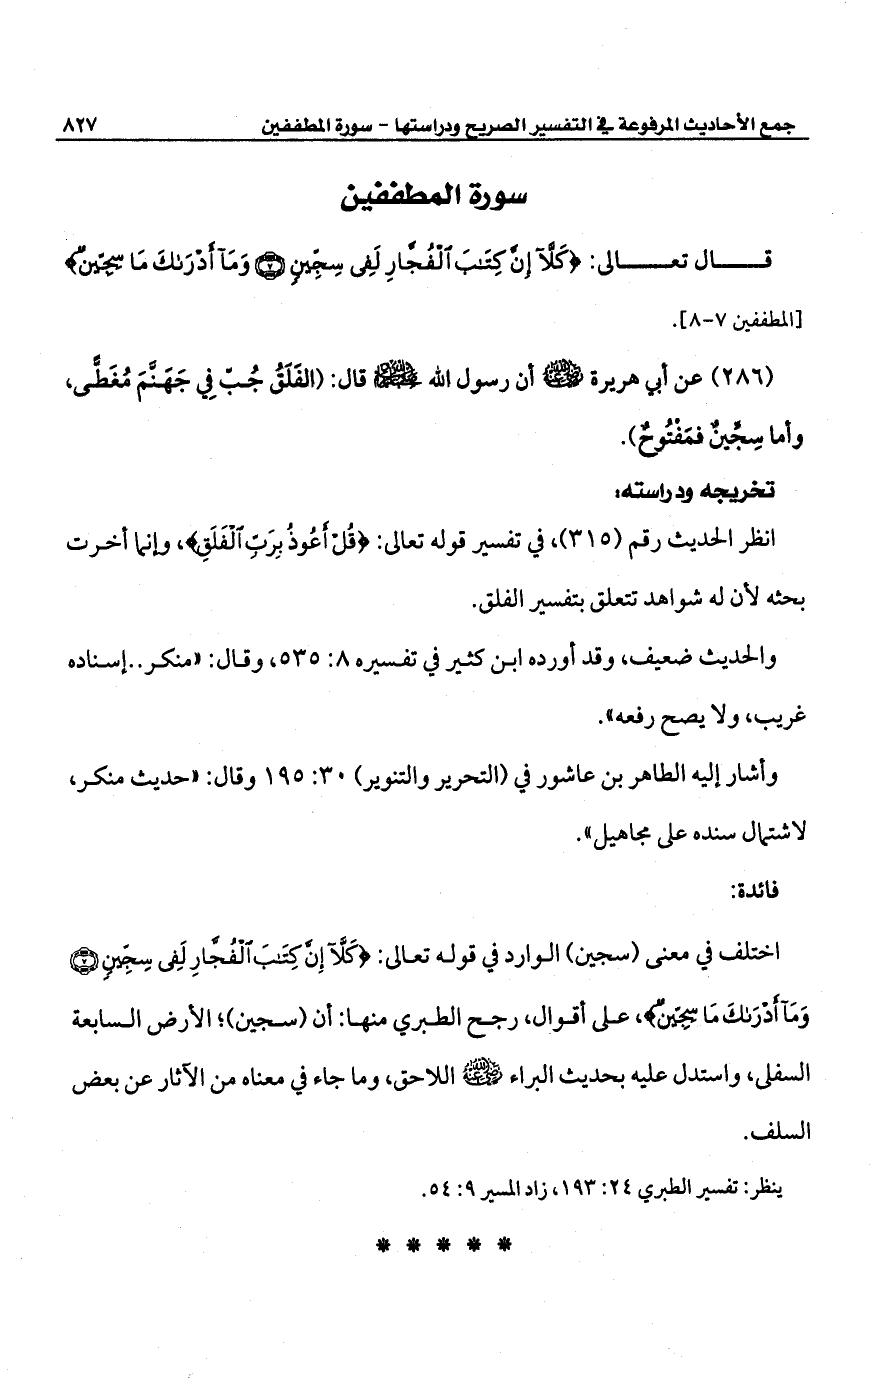 جمع الأحاديث المرفوعة في التفسير الصريح ودراستها - سورة المطففين ٨٢٧
سورة المطففين
قــــــال تعــــــــالى: ﴿كَلَّآ إِنَّ كِتَٰبَ ٱلْفُجَّارِ لَفِى سِجِّينٍ ۝٧ وَمَآ أَدْرَىٰكَ مَا سِجِّينٌ﴾
[المطففين ٧-٨].
(٢٨٦) عن أبي هريرة ﵁ أن رسول الله ﷺ قال: (الفَلَقُ جُبّ فِي جَهَنَّمَ مُغَطًّى،
وأما سِجِّينٌ فمَفْتُوحٌ).
تخريجه ودراسته:
انظر الحديث رقم (٣١٥)، في تفسير قوله تعالى: ﴿قُلْ أَعُوذُ بِرَبِّ ٱلْفَلَقِ﴾، وإنما أخرت
بحثه لأن له شواهد تتعلق بتفسير الفلق.
والحديث ضعيف، وقد أورده ابن كثير في تفسيره ٨: ٥٣٥، وقال: «منكر..إسناده
غريب، ولا يصح رفعه».
وأشار إليه الطاهر بن عاشور في (التحرير والتنوير) ٣٠: ١٩٥ وقال: «حديث منكر،
لاشتمال سنده على مجاهيل».
فائدة:
اختلف في معنى (سجين) الوارد في قوله تعالى: ﴿كَلَّآ إِنَّ كِتَٰبَ ٱلْفُجَّارِ لَفِى سِجِّينٍ ۝٧
وَمَآ أَدْرَىٰكَ مَا سِجِّينٌ﴾، على أقوال، رجح الطبري منها: أن (سجين)؛ الأرض السابعة
السفلى، واستدل عليه بحديث البراء ﵁ اللاحق، وما جاء في معناه من الآثار عن بعض
السلف.
ينظر: تفسير الطبري ٢٤: ١٩٣، زاد المسير ٩: ٥٤.
* * * * *